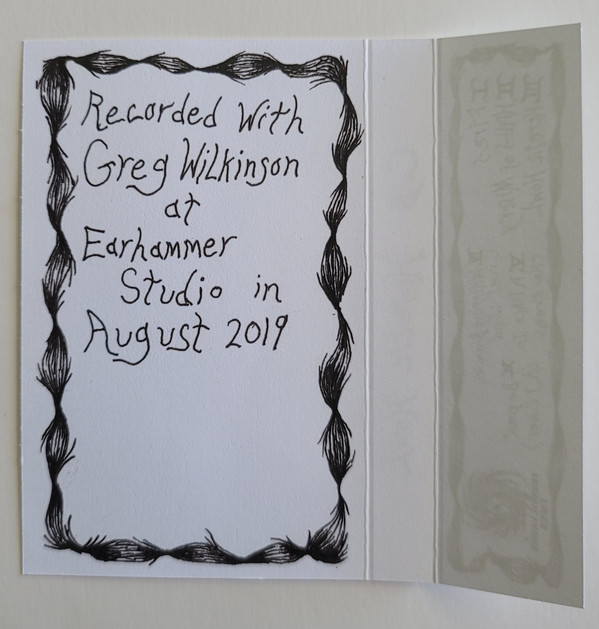 Recorded With
Greg Wilkinson
at
Earhammer
Studio in
August 2019